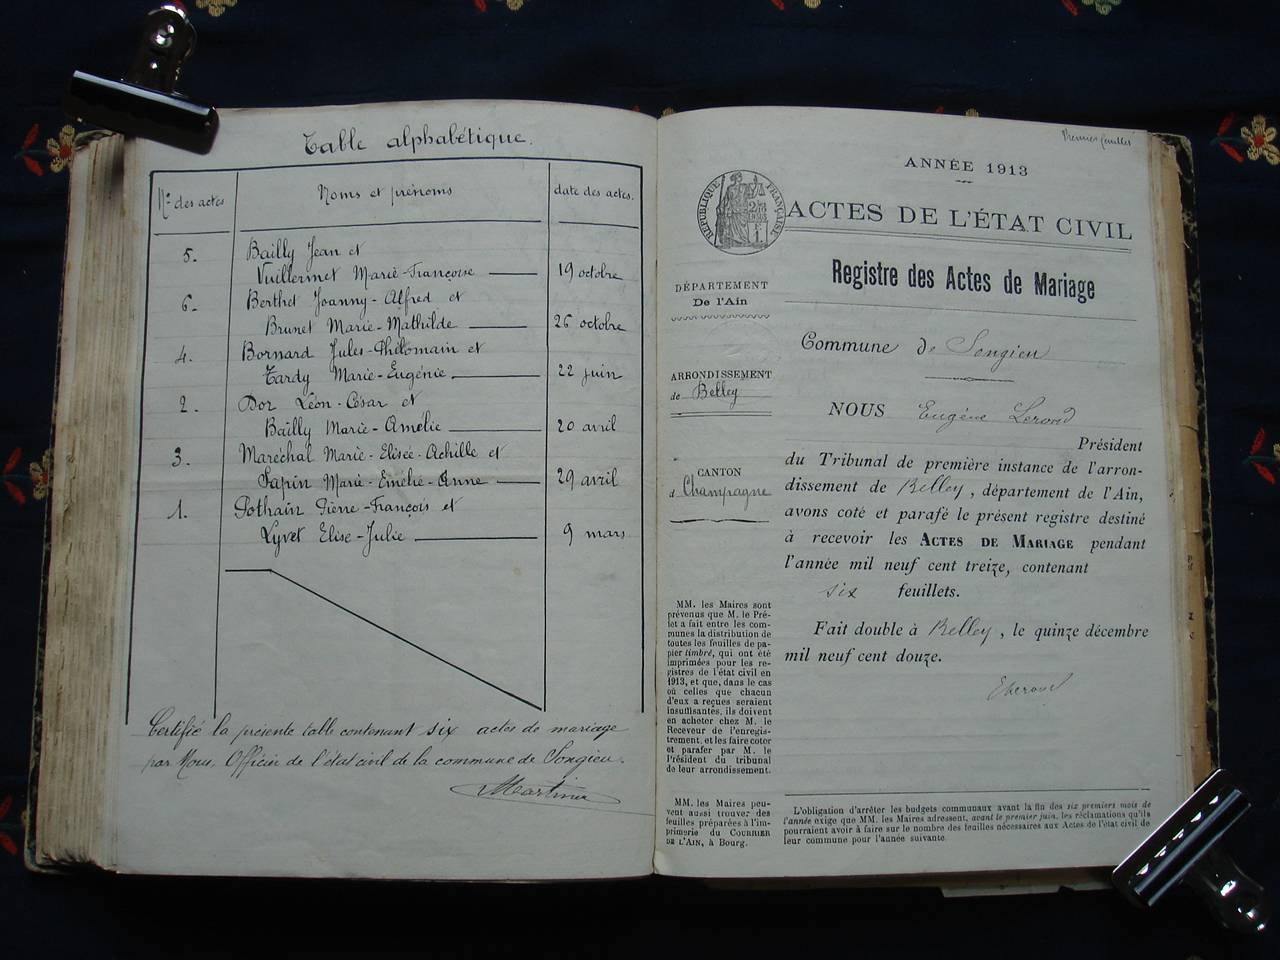 Table alphabétique.
Nos des actes
Noms et prénoms
date des actes.
5. Bailly Jean et
Vuillermet Marie-Françoise 19 octobre
6. Berthet Joanny-Alfred et
Brunet Marie-Mathilde 26 octobre
4. Bornard Jules-Philomain et
Tardy Marie-Eugénie 22 juin
2. Dor Léon-César et
Bailly Marie-Amélie 20 avril
3. Maréchal Marie-Elisée-Achille et
Sapin Marie-Emélie-Anne 29 avril
1. Pothain Pierre-François et
Lyvet Elise-Julie 9 mars
Certifié la présente table contenant six actes de mariage
par Nous, Officier de l'état civil de la commune de Songieu.
Premier feuillet
ANNÉE 1913
RÉPUBLIQUE FRANÇAISE
ACTES DE L'ÉTAT CIVIL
Registre des Actes de Mariage
DÉPARTEMENT
De l'Ain
ARRONDISSEMENT
de Belley
CANTON
d Champagne
MM. les Maires sont
prévenus que M. le Pré-
fet a fait entre les com-
munes la distribution de
toutes les feuilles de pa-
pier timbré, qui ont été
imprimées pour les re-
gistres de l'état civil en
1913, et que, dans le cas
où celles que chacun
d'eux a reçues seraient
insuffisantes, ils doivent
en acheter chez M. le
Receveur de l'enregis-
trement, et les faire coter
et parafer par M. le
Président du tribunal
de leur arrondissement.
MM. les Maires peu-
vent aussi trouver des
feuilles préparées à l'im-
primerie du COURRIER
DE L'AIN, à Bourg.
Commune de Songieu
NOUS Eugène Lerond
Président
du Tribunal de première instance de l'arron-
dissement de Belley, département de l'Ain,
avons coté et parafé le présent registre destiné
à recevoir les ACTES DE MARIAGE pendant
l'année mil neuf cent treize, contenant
six feuillets.
Fait double à Belley, le quinze décembre
mil neuf cent douze.
L'obligation d'arrêter les budgets communaux avant la fin des six premiers mois de
l'année exige que MM. les Maires adressent, avant le premier juin, les réclamations qu'ils
pourraient avoir à faire sur le nombre des feuilles nécessaires aux Actes de l'état civil de
leur commune pour l'année suivante.